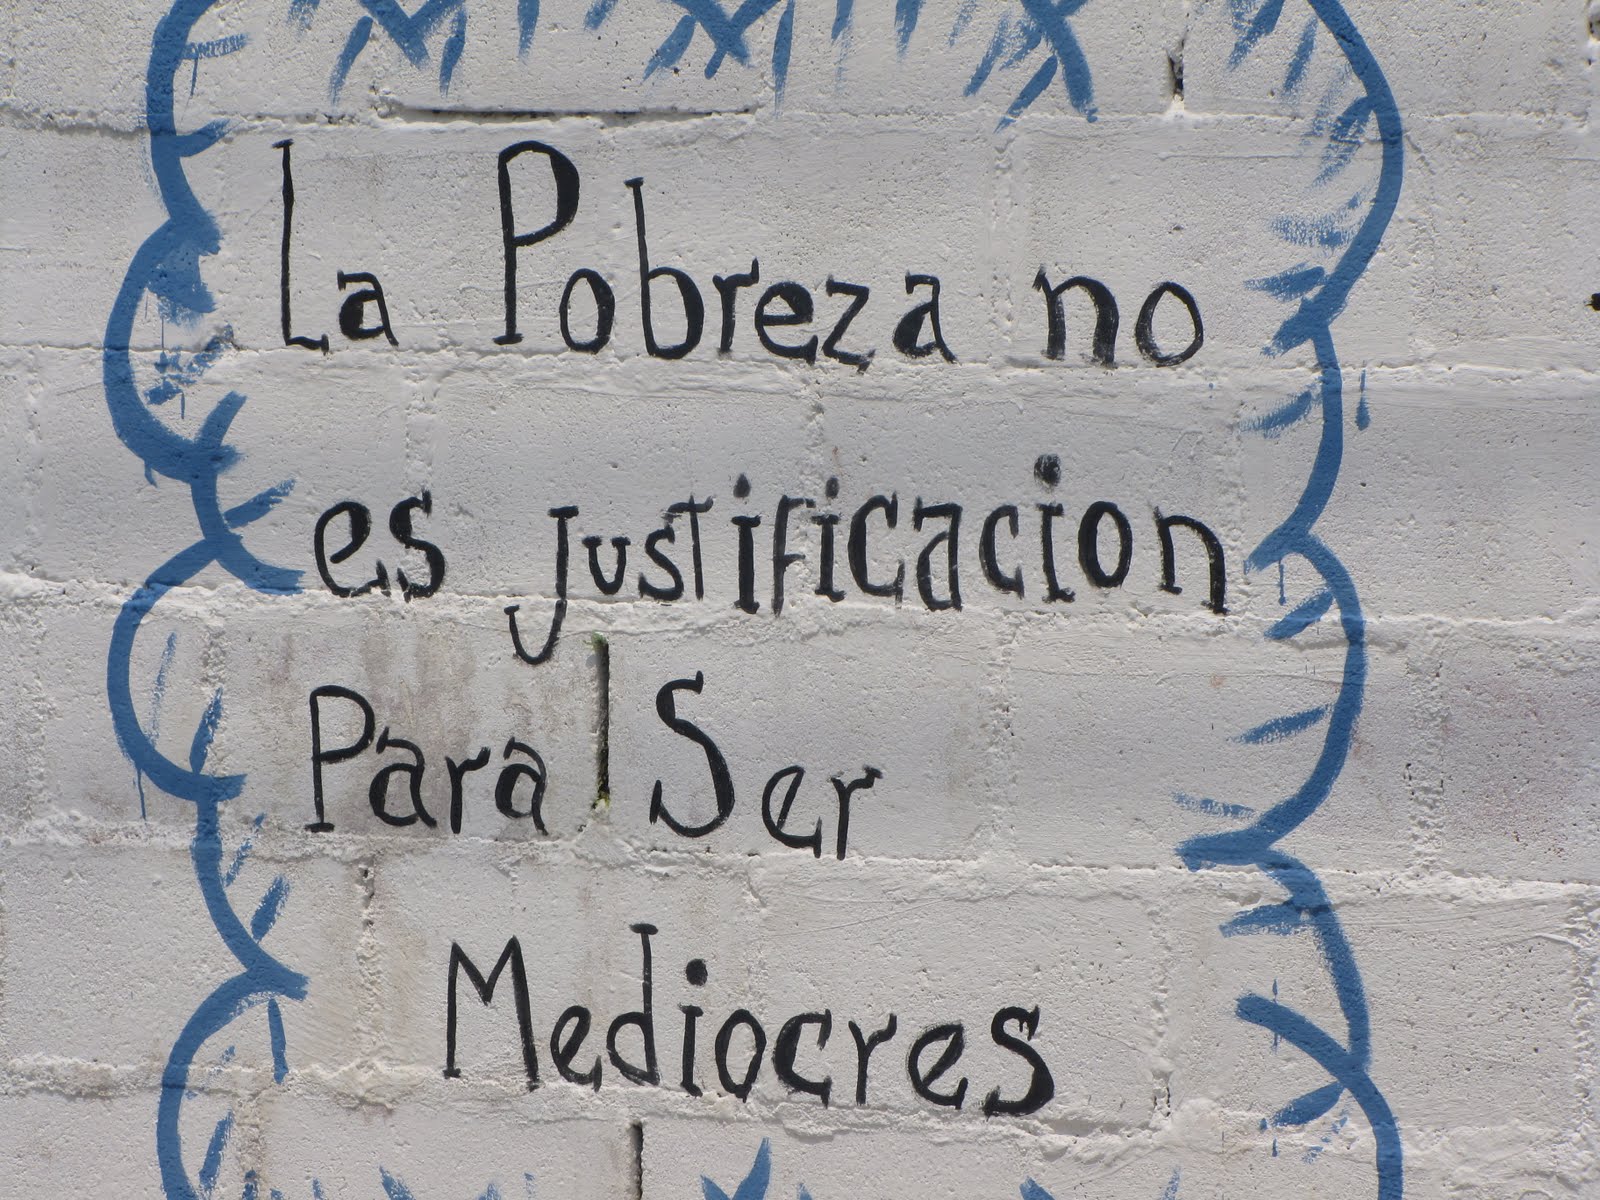 La Pobreza no
es justificacion
Para Ser
Mediocres